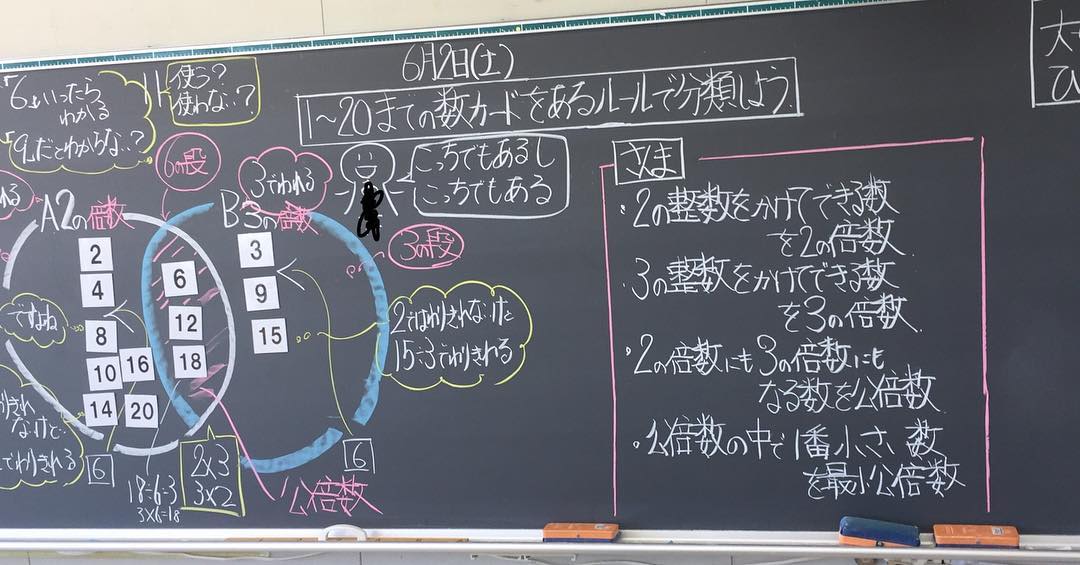 6月2日(土)
1~20までの数カードをあるルールで分類しよう.
「6」といったら
わかる
「9」だとわからな..?
使う?
使わな..?
6の段
3でわれる
こっちでもあるし
こっちでもある
われる
A2の倍数
B3の倍数
3の段
2
4
8
10
16
14
20
6
12
18
3
9
15
ですよね
2ではわりきれないけど
15÷3でわりきれる
わりきれ
ないけど..
でわりきれる
6
6
18÷6=3
3×6=18
2×3
3×2
公倍数
さま
・2の整数をかけてできる数
を2の倍数
・3の整数をかけてできる数
を3の倍数.
・2の倍数にも3の倍数にも
なる数を公倍数
・公倍数の中で1番小さい数
を最小公倍数